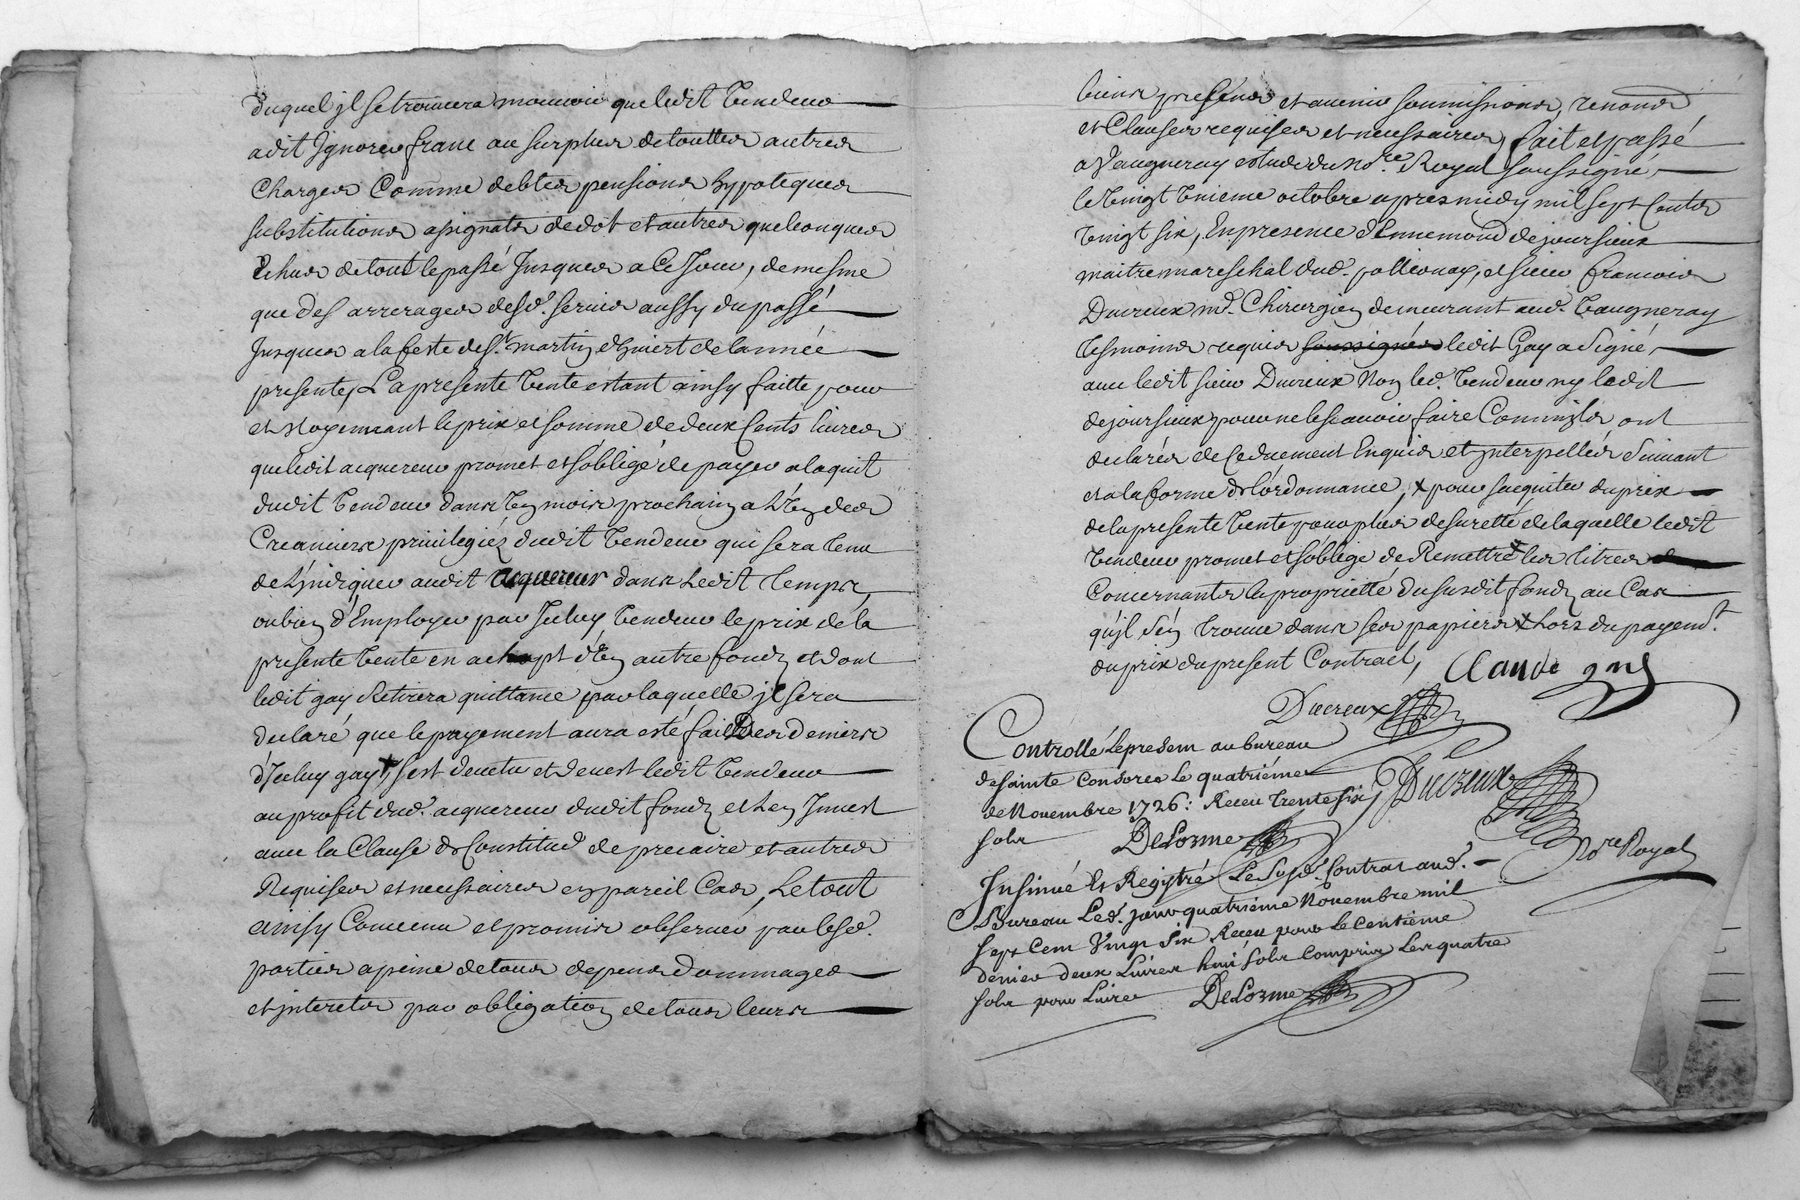 duquel jl se trouvera mouvoir que ledit vendeur
a dit Ignorer franc au surplus de touttes autres
Charges Comme debtes pensions hypoteques
substitutions assignats de dot et autres quelconques
Echues de tout le passé Jusques a Ce Jour, de mesme
que des arrerages desd. servis aussy du passé
Jusques a la feste de st. martin dhivert de lannée
presente, La presente vente estant ainsy faitte pour
et Moyennant le prix et somme de deux Cents livres
que ledit acquereur promet et s'obligé de payer a laquit
dudit vendeur dans un mois prochain a L'un des
Creanciers privilegiéz dudit vendeur qui sera tenu
de L'jndiquer audit acquereur dans Ledit temps
ou bien d'Employer par Jceluy vendeur le prix de la
presente vente en achapt d'un autre fondz et dont
ledit gay Retirera quittance par laquelle jl sera
declaré que le payement aura esté fait Des deniers
d'Jceluy gay x, sest devetu et devest ledit vendeur
au profit dud. acquereur dudit fondz et Len Jnvest
avec la Clause de Constitud de precaire et autres
Requises et necessaires en pareil Cas, Le tout
ainsy Convenu et promis observer par lesd.
parties a peine de tous depens Dommages
et jnterets par obligation de tous leurs
biens presens et avenir soumissions, renons
et Clauses requises et necessaires, fait et passé
a Vaugneray estude du No.re Royal soussigné,
le vingt unieme octobre apres midy mil sept Cents
vingt six, En presence d'Ennemond dejoursieux
maitre mareschal dud. pollionay, et sieur francois
Ducreux m.e Chirurgien demeurant aud. vaugneray
tesmoins requis soussignés ledit Gay a Signé,
avec ledit sieur Ducreux Non led. vendeur ny ledit
dejoursieux pour ne le scavoir faire Comm'jls ont
declarés de Ce duement Enquis et jnterpellés Suivant
et a la forme de l'ordonnance, x pour sacquiter du prix
de la presente vente pour plus de suretté de laquelle ledit
vendeur promet et s'oblige de Remettre x les titres
Concernants la proprietté du susdit fondz au Cas
qu'jl s'en trouve dans ses papiers x hors du payem.t
du prix du present Contract,
Claude gay
Ducreux
Controllé le present au bureau
de sainte Consorce Le quatriéme
de Novembre 1726: Receu trente six
sols
DeLorme
Ducreux
No.re Royal
Jnsinué Et Registré Le Susd. Contrat aud.
Bureau Led. jour quatriéme Novembre mil
sept Cent Vingt Six Receu pour Le Centiéme
denier deux Livres huit sols Compris Les quatre
sols pour Livre
DeLorme